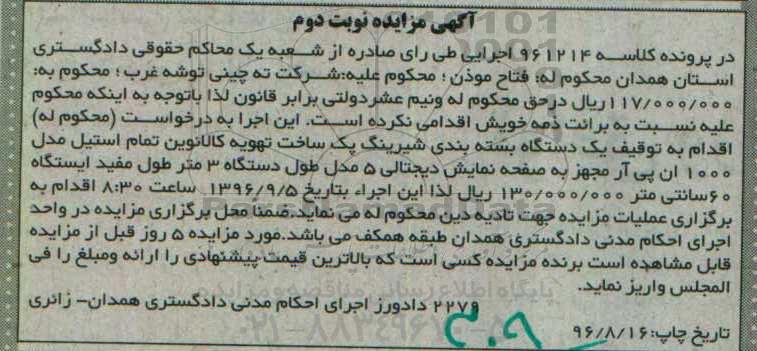 آگهی مزایده نوبت دوم
در پرونده کلاسه ۹۶۱۲۱۴ اجرایی طی رای صادره از شعبه یک محاکم حقوقی دادگستری
استان همدان محکوم له: فتاح موذن ؛ محکوم علیه:شرکت ته چینی توشه غرب ؛ محکوم به:
۱۱۷/۰۰۰/۰۰۰ریال درحق محکوم له ونیم عشردولتی برابر قانون لذا باتوجه به اینکه محکوم
علیه نسبت به برائت ذمه خویش اقدامی نکرده است. این اجرا به درخواست (محکوم له)
اقدام به توقیف یک دستگاه بسته بندی شیرینگ پک ساخت تهویه کالانوین تمام استیل مدل
۱۰۰۰ ان پی آر مجهز به صفحه نمایش دیجتالی ۵ مدل طول دستگاه ۳ متر طول مفید ایستگاه
۶۰سانتی متر ۱۳۰/۰۰۰/۰۰۰ ریال لذا این اجراء بتاریخ ۱۳۹۶/۹/۵ ساعت ۸:۳۰ اقدام به
برگزاری عملیات مزایده جهت تادیه دین محکوم له می نماید.ضمنا محل برگزاری مزایده در واحد
اجرای احکام مدنی دادگستری همدان طبقه همکف می باشد.مورد مزایده ۵ روز قبل از مزایده
قابل مشاهده است برنده مزایده کسی است که بالاترین قیمت پیشنهادی را ارائه ومبلغ را فی
المجلس واریز نماید.
۲۲۷۹ دادورز اجرای احکام مدنی دادگستری همدان- زائری
تاریخ چاپ:۹۶/۸/۱۶